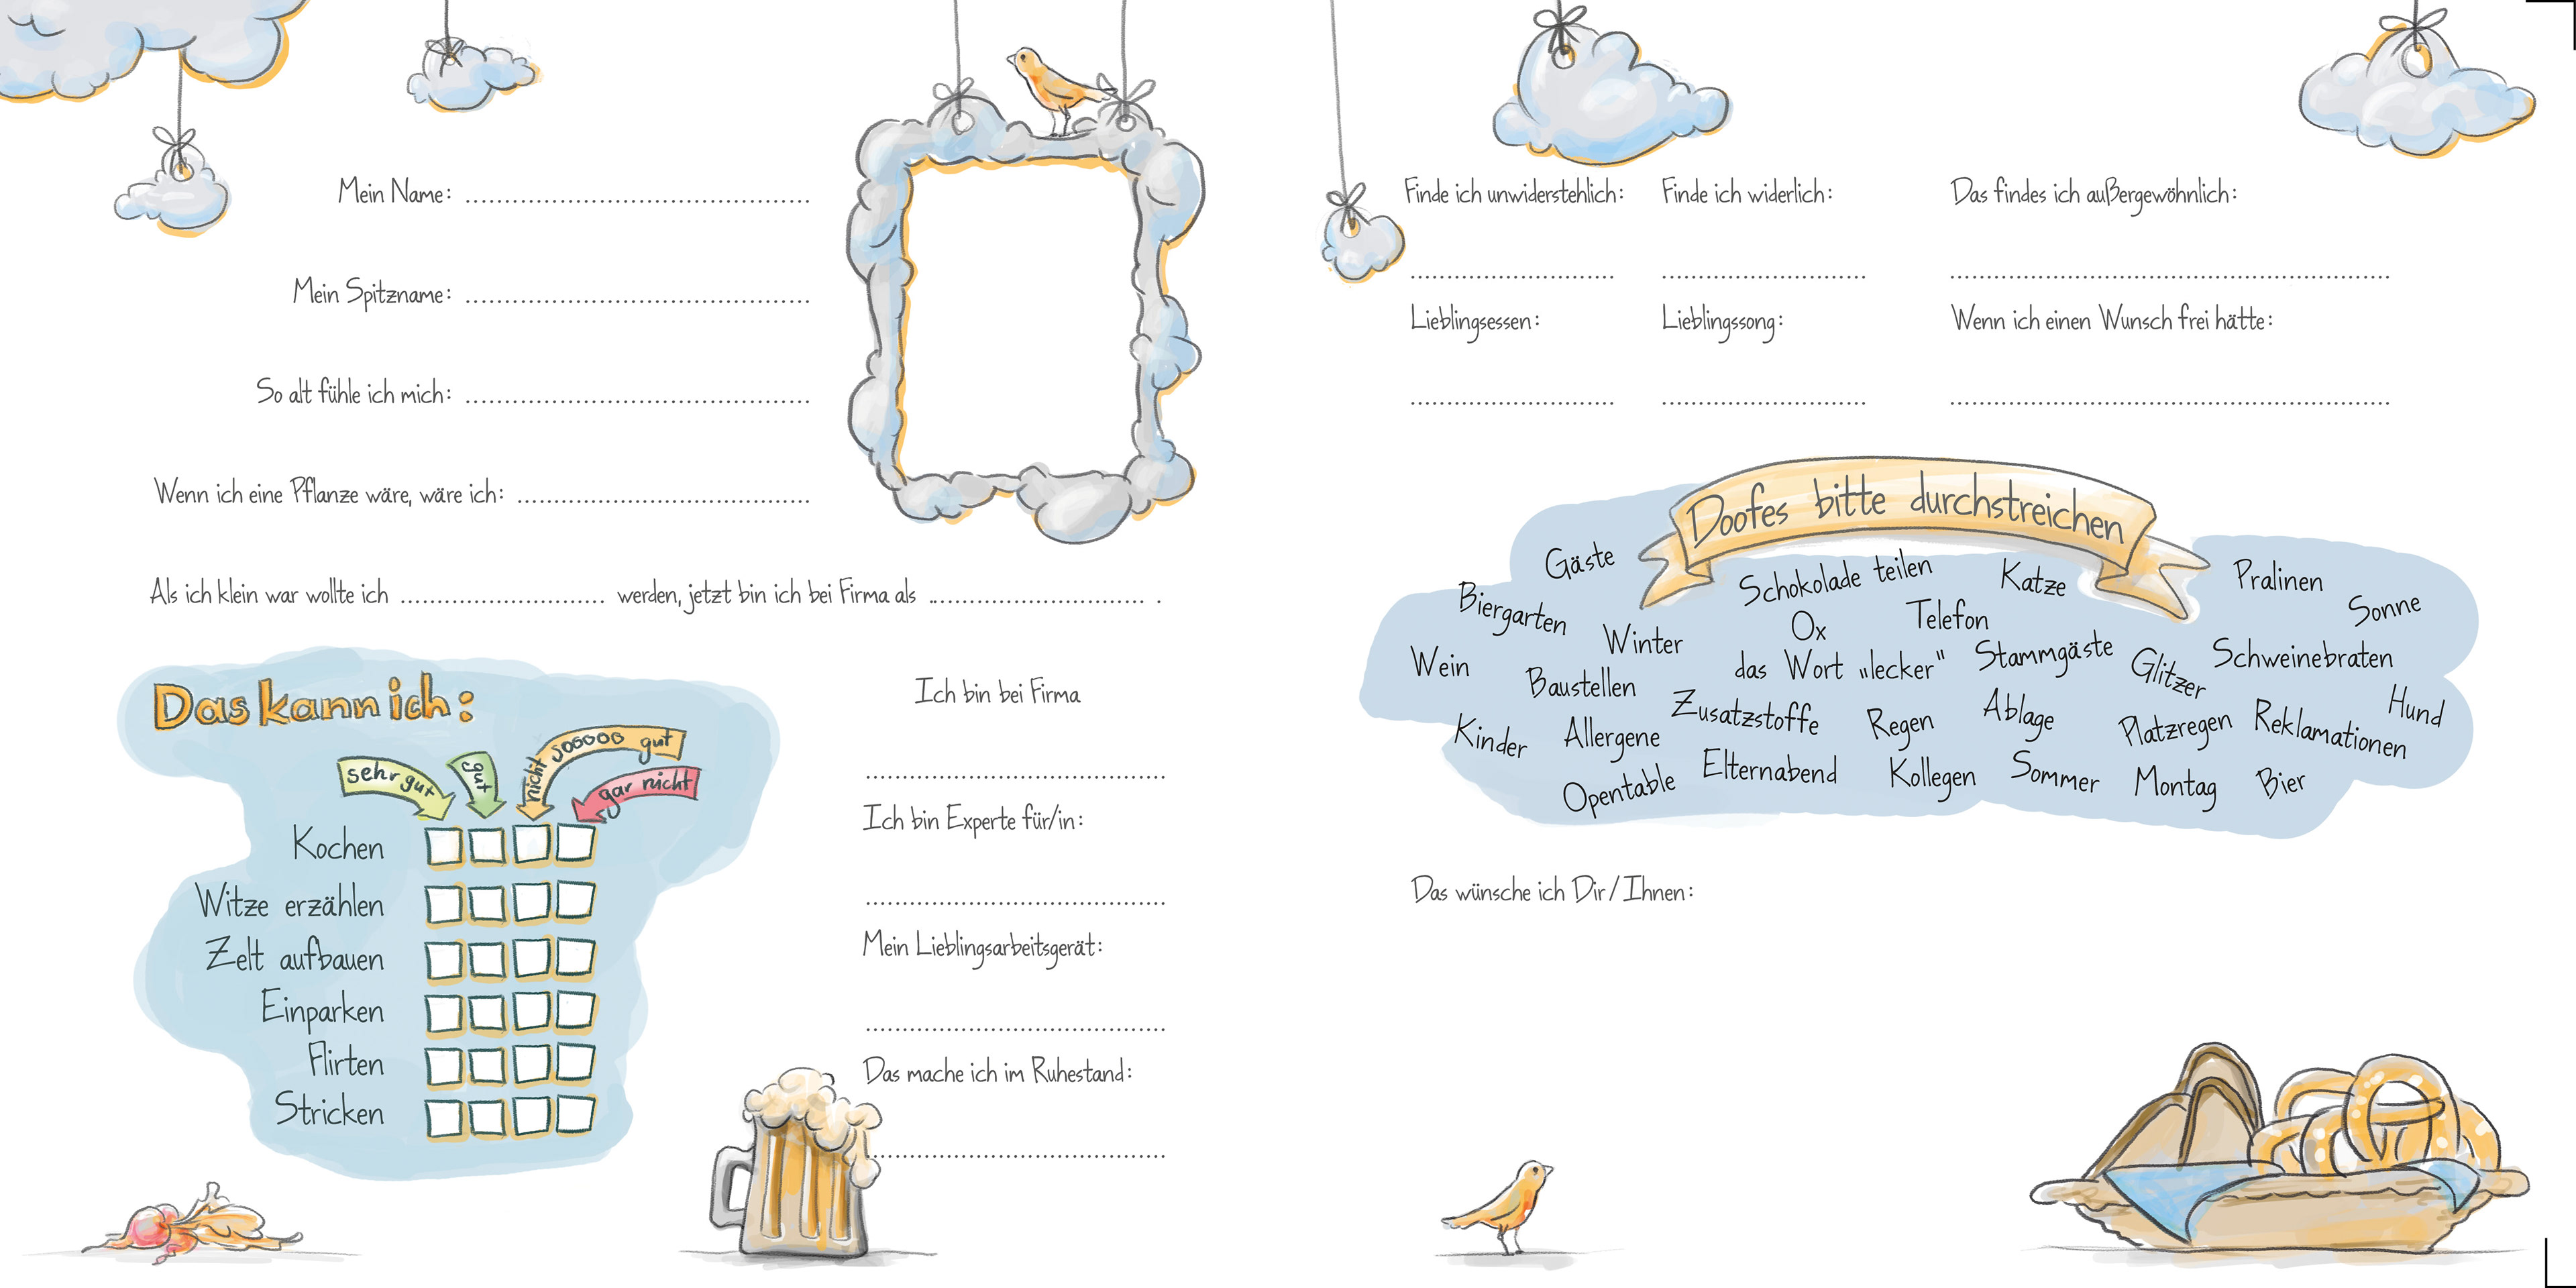 Mein Name:
Mein Spitzname:
So alt fühle ich mich:
Wenn ich eine Pflanze wäre, wäre ich:
Als ich klein war wollte ich werden, jetzt bin ich bei Firma als .
Das kann ich:
sehr gut
gut
nicht sooooo gut
gar nicht
Kochen
Witze erzählen
Zelt aufbauen
Einparken
Flirten
Stricken
Ich bin bei Firma
Ich bin Experte für/in:
Mein Lieblingsarbeitsgerät:
Das mache ich im Ruhestand:
Finde ich unwiderstehlich: Finde ich widerlich: Das findes ich außergewöhnlich:
Lieblingsessen: Lieblingssong: Wenn ich einen Wunsch frei hätte:
Doofes bitte durchstreichen
Gäste Schokolade teilen Katze Pralinen
Biergarten Ox Telefon Sonne
Wein Winter das Wort „lecker" Stammgäste Glitzer Schweinebraten
Baustellen Zusatzstoffe Ablage Hund
Kinder Allergene Regen Platzregen Reklamationen
Opentable Elternabend Kollegen Sommer Montag Bier
Das wünsche ich Dir/Ihnen: